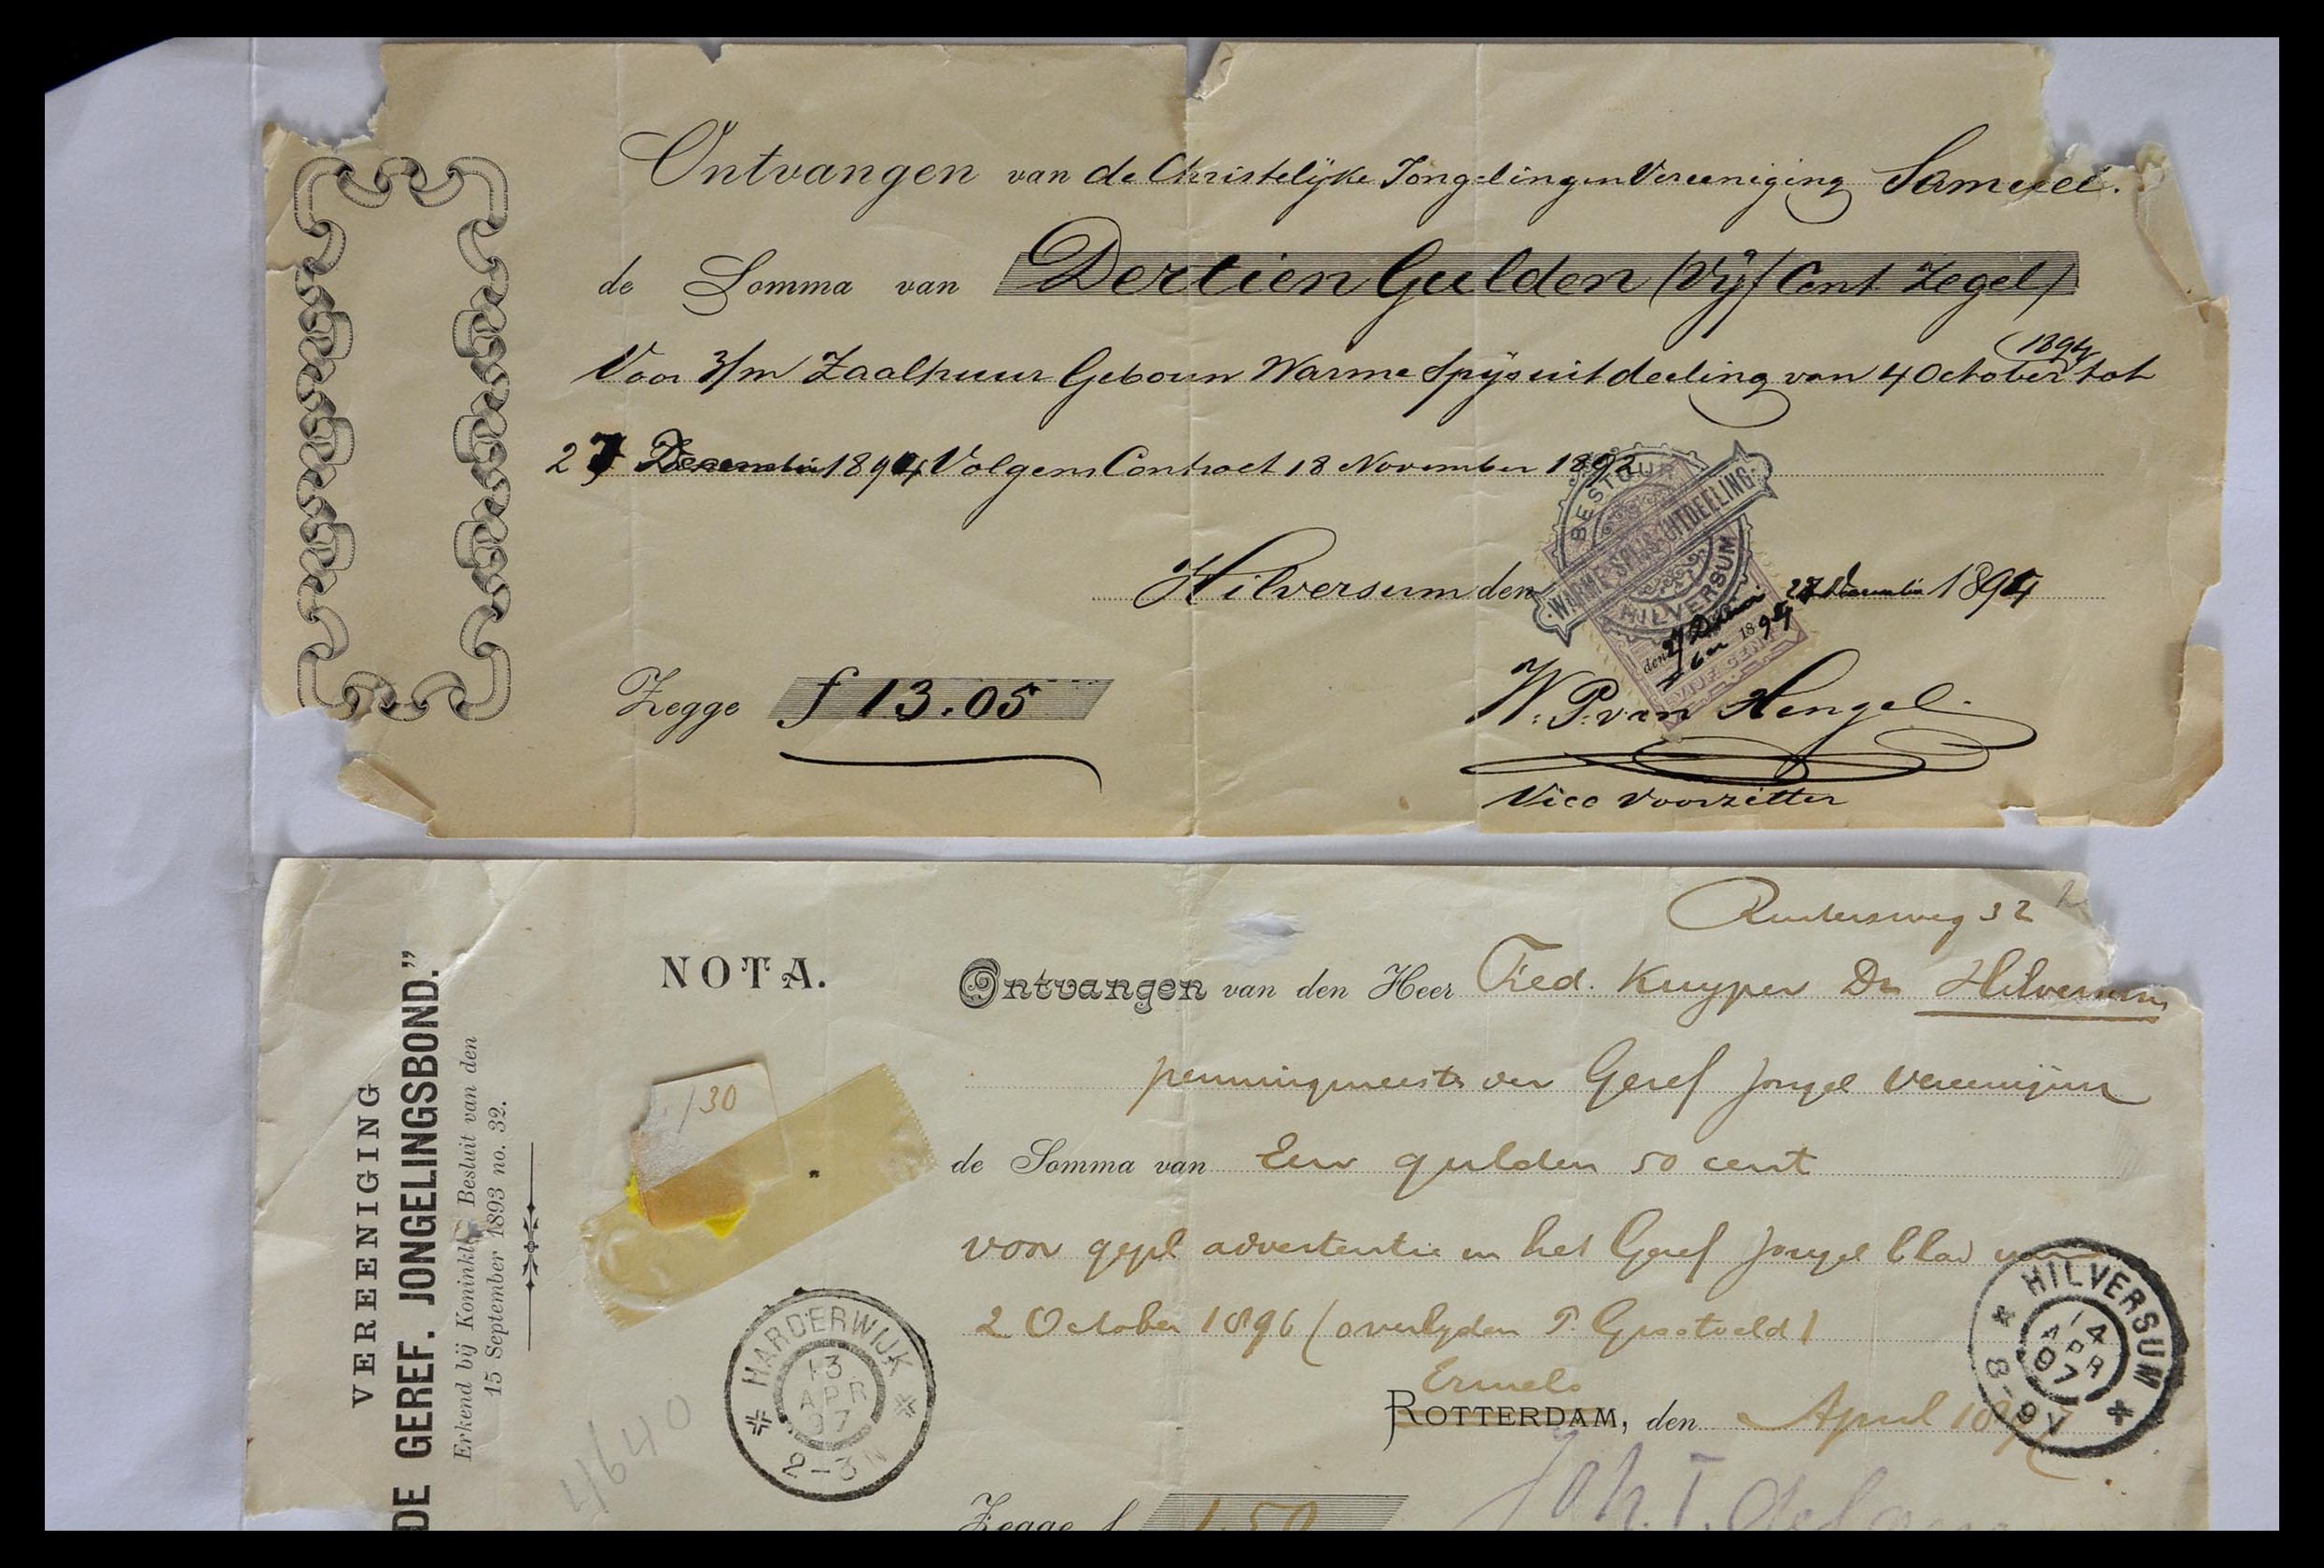 Ontvangen van de Christelijke Jongelingen Vereeniging Samuel.
de Somma van Dertien Gulden (Vijf Cent Zegel)
1894
Voor 3/m Zaalhuur Gebouw Warme Spijsuitdeeling van 4 October tot
27 December 1894 Volgens Contract 18 November 1892
BESTUUR
WARME SPIJS-UITDEELING
HILVERSUM
Hilversum den 27 December 1894
den 27 Decem
ber 1894
VIJF CENT
Zegge f 13.05
W. P. van Hengel.
Vice Voorzitter
VEREENIGING
DE GEREF. JONGELINGSBOND."
Erkend bij Koninkl. Besluit van den
15 September 1893 no. 32.
NOTA.
32
Ontvangen van den Heer Fred. Kuyper Dz Hilversum
penningmeester der Geref Jongel Vereeniging
130
de Somma van Een gulden 50 cent
voor gepl advertentie in het Geref Jongel blad van
2 October 1896 (overlyden P. Grootveld)
Ermelo
ROTTERDAM, den April 1897
HARDERWIJK
13
APR
97
2-3N
HILVERSUM
14
APR
97
8-9V
4640
Zegge f 1.50
Joh. T.